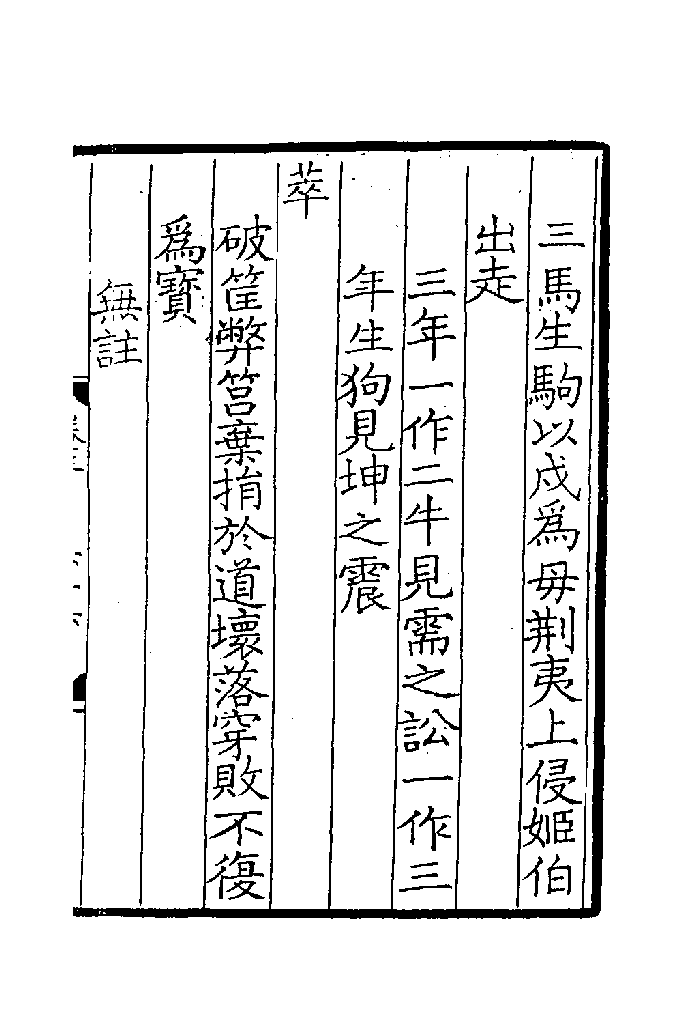 三馬生駒以戍爲母荆夷上侵姬伯
出走
三年一作二牛見需之訟一作三
年生狗見坤之震
萃
破筐弊筥棄捐於道壞落穿敗不復
爲寶
無註